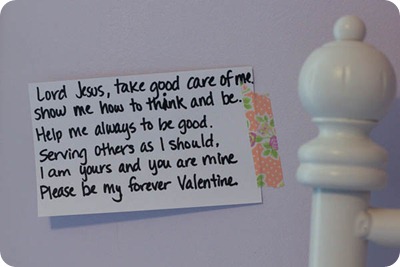 Lord Jesus, take good care of me.
show me how to think and be.
Help me always to be good.
Serving others as I should,
I am yours and you are mine
Please be my forever Valentine.